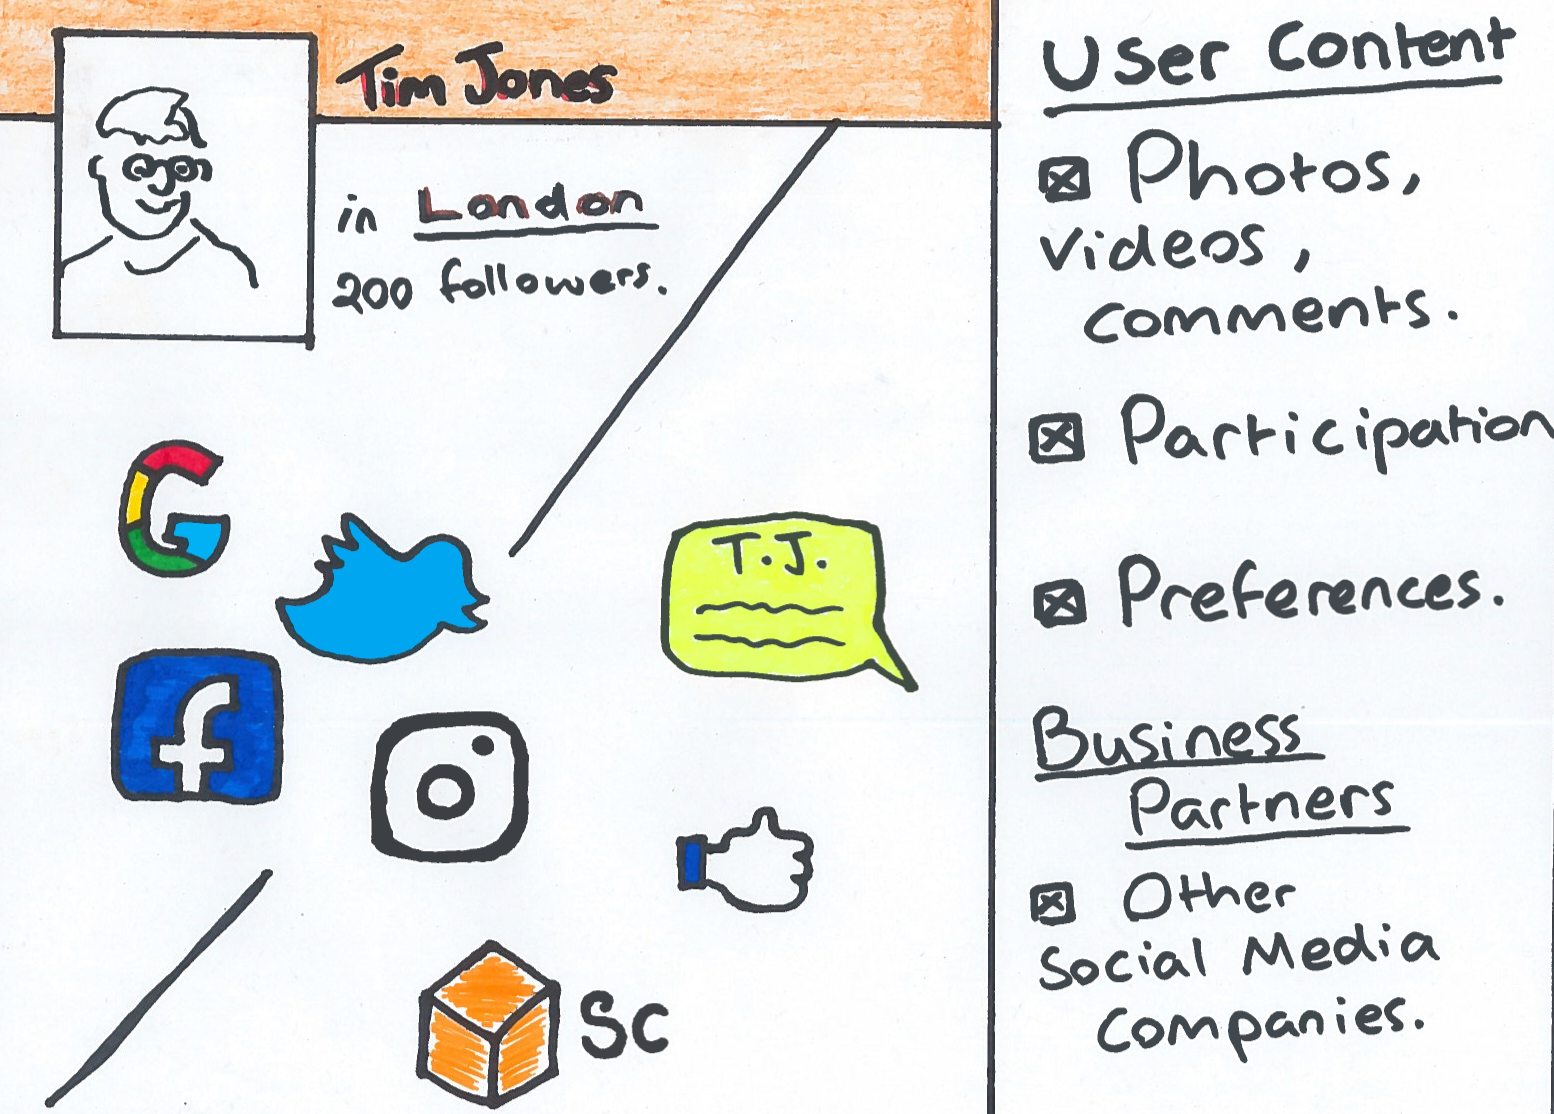 Tim Jones
in London
200 followers.
T.J.
SC
User Content
Photos,
videos,
comments.
Participation
Preferences.
Business
Partners
Other
Social Media
Companies.